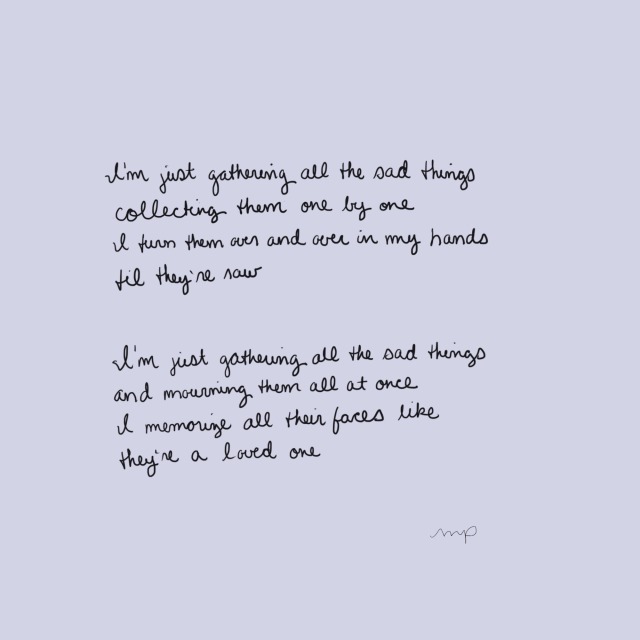 I'm just gathering all the sad things
collecting them one by one
I turn them over and over in my hands
til they're raw
I'm just gathering all the sad things
and mourning them all at once
I memorize all their faces like
they're a loved one
mp